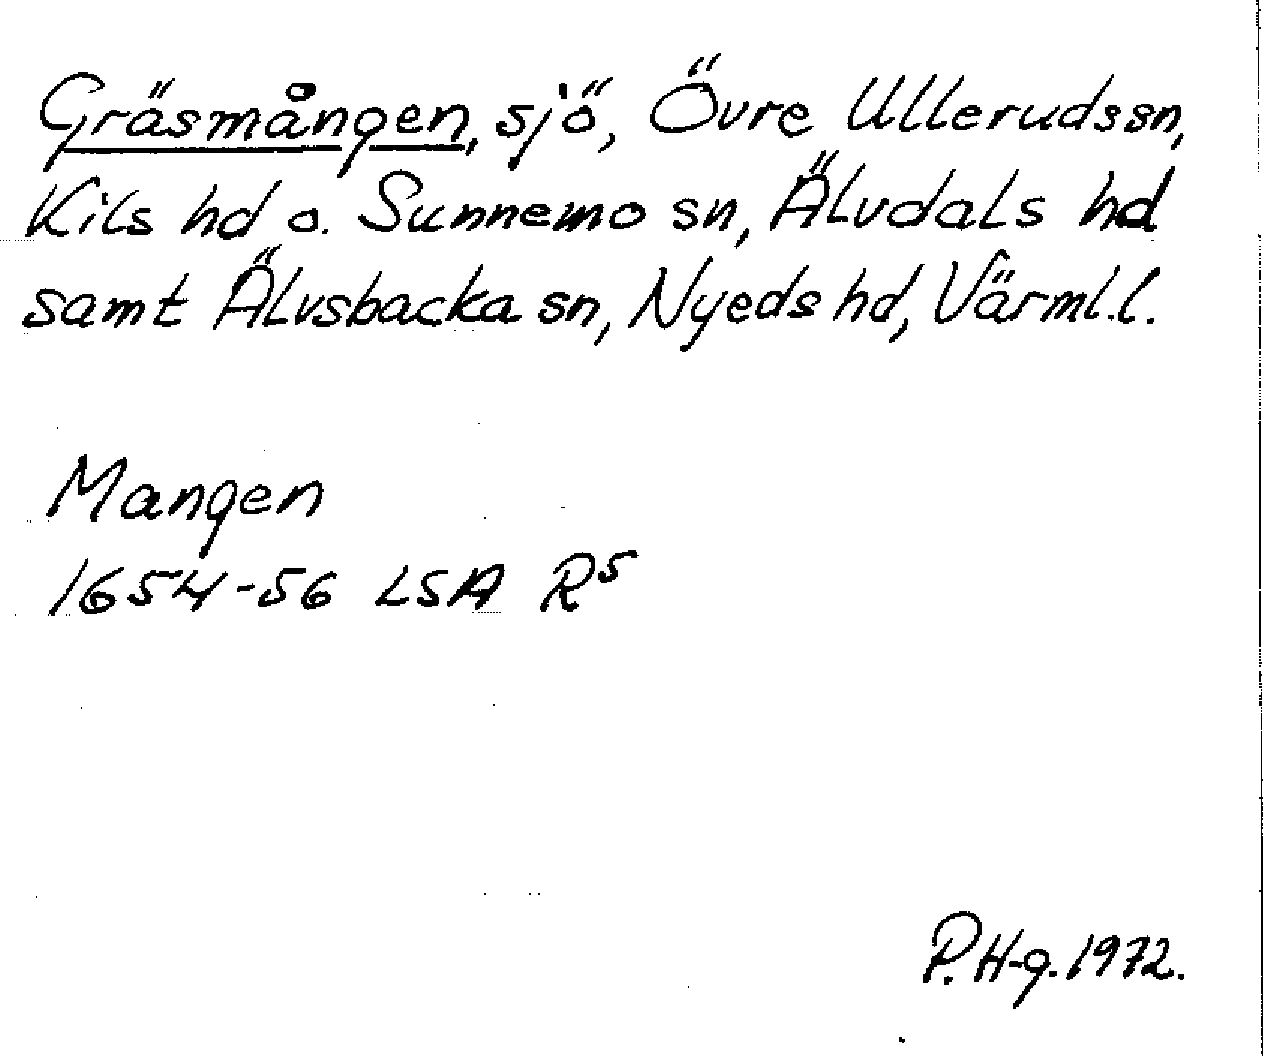 Gräsmången, sjö, Övre Ullerudssn,
Kils hd o. Sunnemo sn, Älvdals hd
samt Älvsbacka sn, Nyeds hd, Värml.l.
Mangen
1654-56 LSA R⁵
P. H-g. 1972.